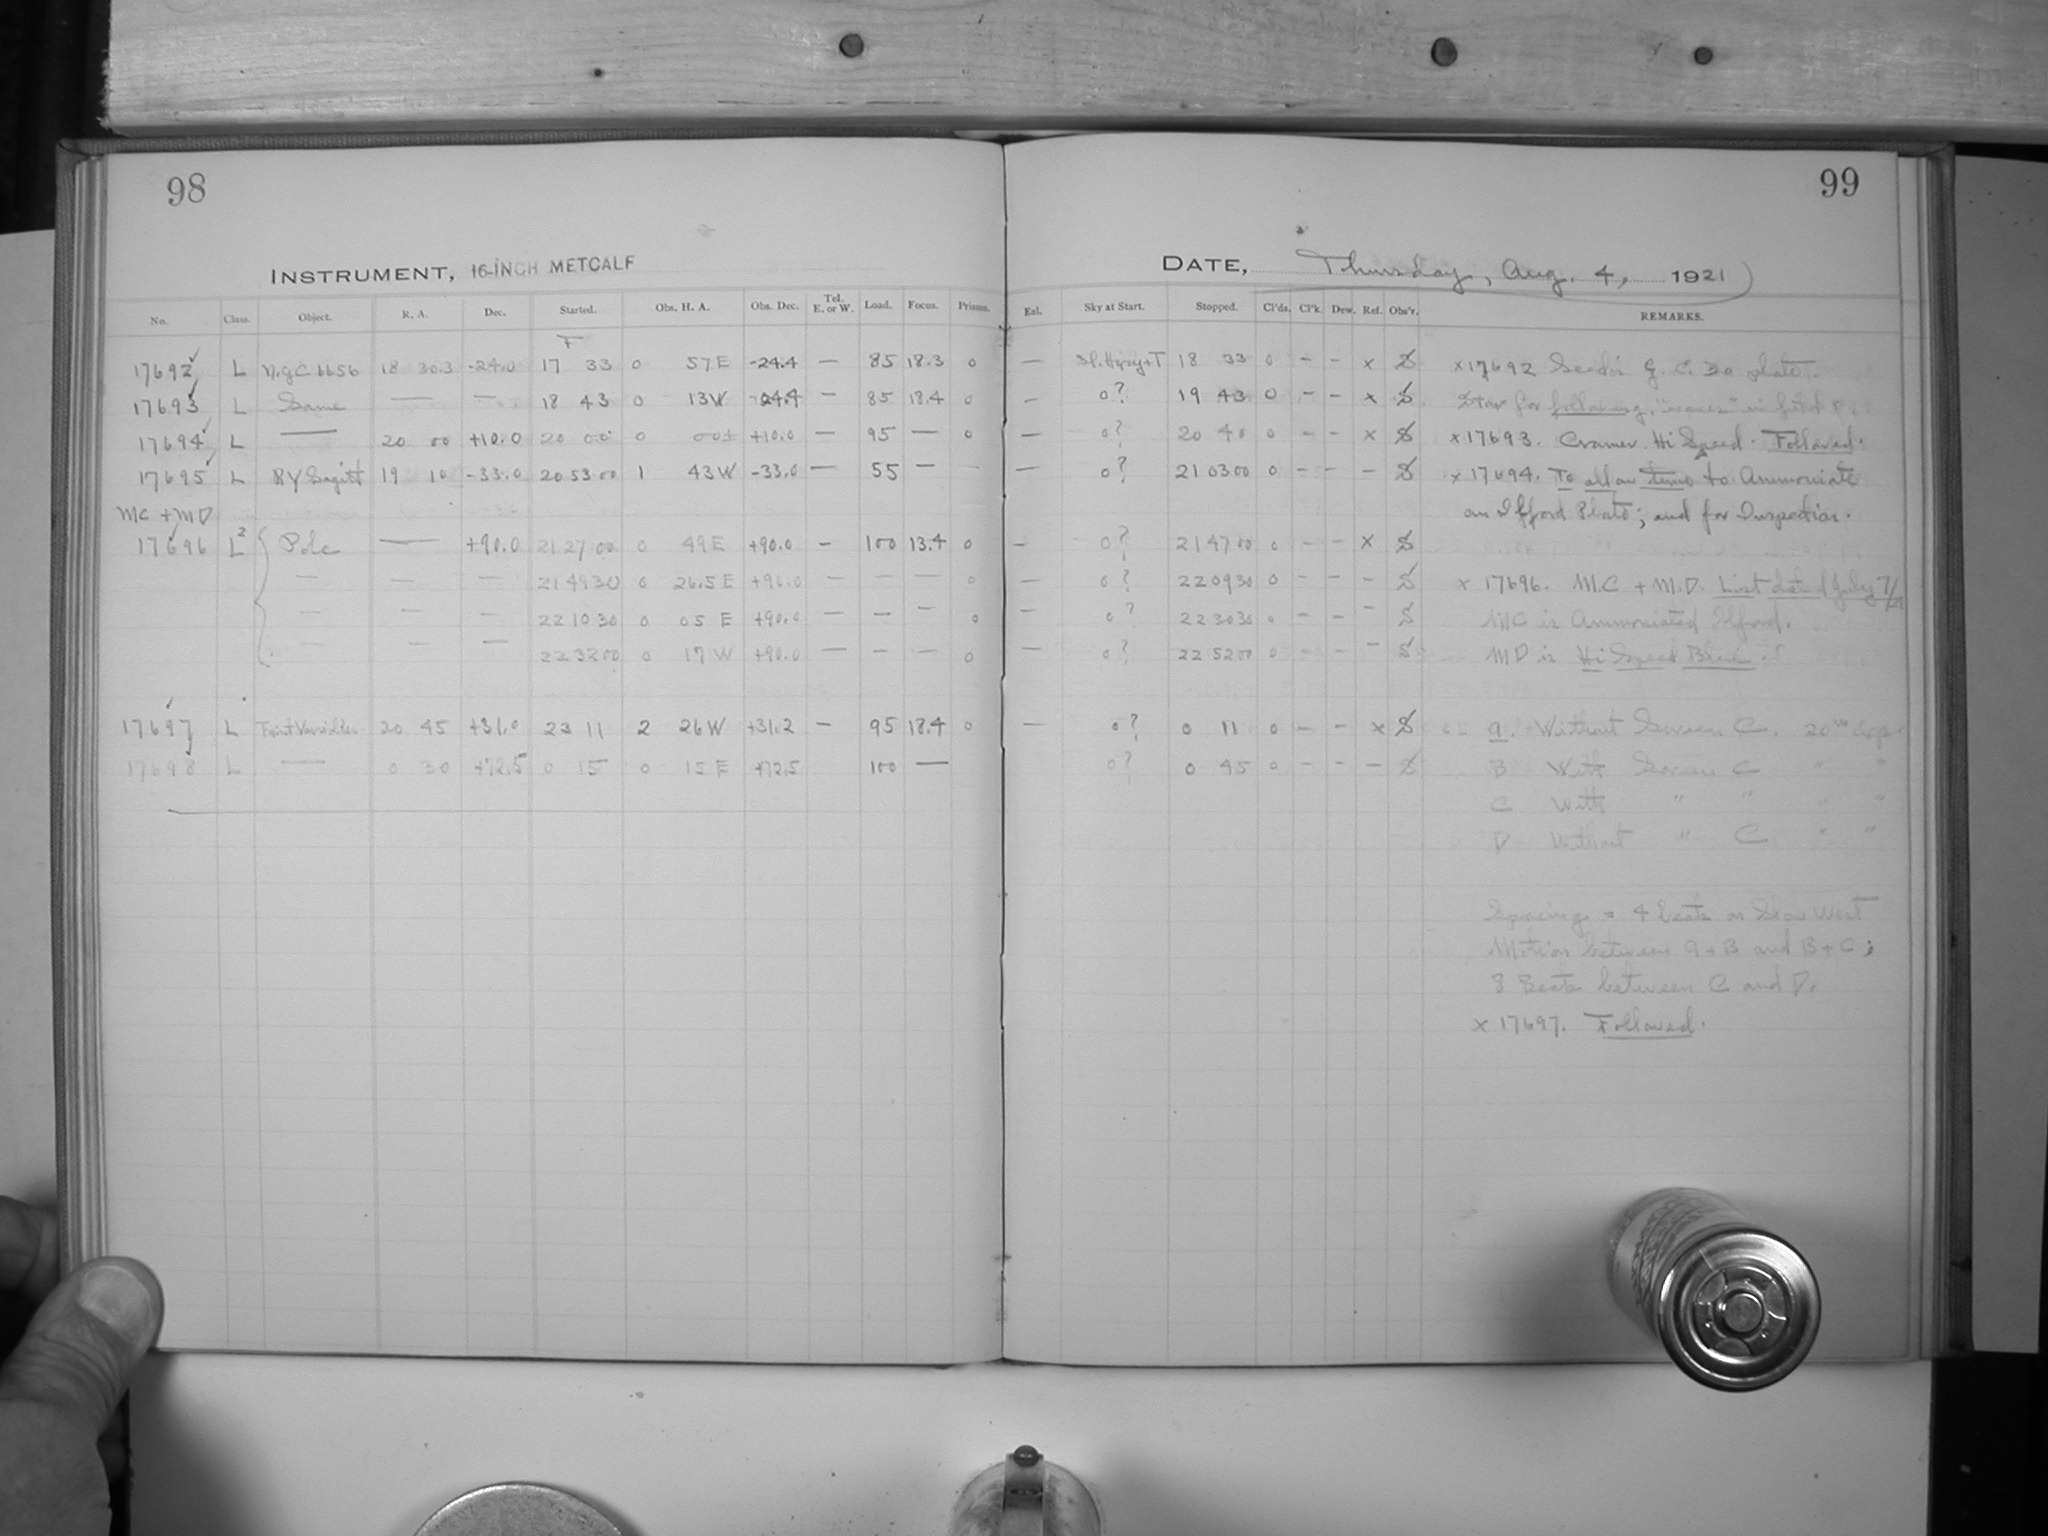 98
INSTRUMENT, 16-INCH METCALF
No. Class. Object. R. A. Dec. Started. Obs. H. A. Obs. Dec. Tel. E. or W. Load. Focus. Prisms.
F
17692 L N.G.C 6656 18 30.3 -24.0 17 33 0 57 E -24.4 — 85 18.3 0
17693 L Same — — 18 43 0 13 W -24.4 — 85 18.4 0
17694 L — 20 00 +10.0 20 00 0 00± +10.0 — 95 — 0
17695 L RY Sagitt 19 10 -33.0 20 53 00 1 43 W -33.0 — 55 —
MC + MD
17696 L2 Pole — +90.0 21 27 00 0 49 E +90.0 - 100 13.4 0
— — — 21 49 30 0 26.5 E +90.0 — — — 0
— — — 22 10 30 0 05 E +90.0 — — — 0
— — — 22 32 00 0 17 W +90.0 — — — 0
17697 L Faint Variables 20 45 +31.0 23 11 2 26 W +31.2 — 95 18.4 0
17698 L — 0 30 +72.5 0 15 0 15 E +72.5 100 —
99
DATE, Thursday, Aug. 4, 1921
Eal. Sky at Start. Stopped. Cl'ds. Cl'k. Dew. Ref. Obs'r. REMARKS.
— Sl. Hazy+T 18 33 0 - - x S x 17692 Seed's G. C. 30 plate.
— 0? 19 43 0 - - x S Star for following, in field
— 0? 20 40 0 - - x S x 17693. Cramer Hi Speed. Followed.
— 0? 21 03 00 0 - - - S x 17694. To allow time to Ammoniate
an Ilford Plate; and for Inspection.
— 0? 21 47 00 0 - - x S
— 0? 22 09 30 0 - - - S x 17696. M.C + M.D. List dated July 7/21
— 0? 22 30 30 0 - - - S MC is Ammoniated Ilford.
— 0? 22 52 00 0 - - - S MD is Hi Speed Blue.
— 0? 0 11 0 - - x S a. Without Screen C. 20m Exp.
0? 0 45 0 - - - S B With Screen C " "
C With " " " "
D Without " C " "
Spacing = 4 beats on Slow West
Motion between a + B and B + C;
8 Beats between C and D.
x 17697. Followed.